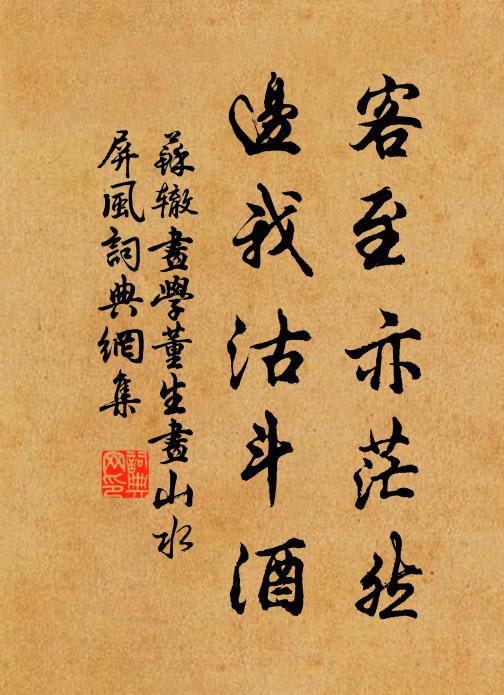 客至亦茫然
邊我沽斗酒
蘇辙畫學董生畫山水
屏風詞典網集
詞典网印